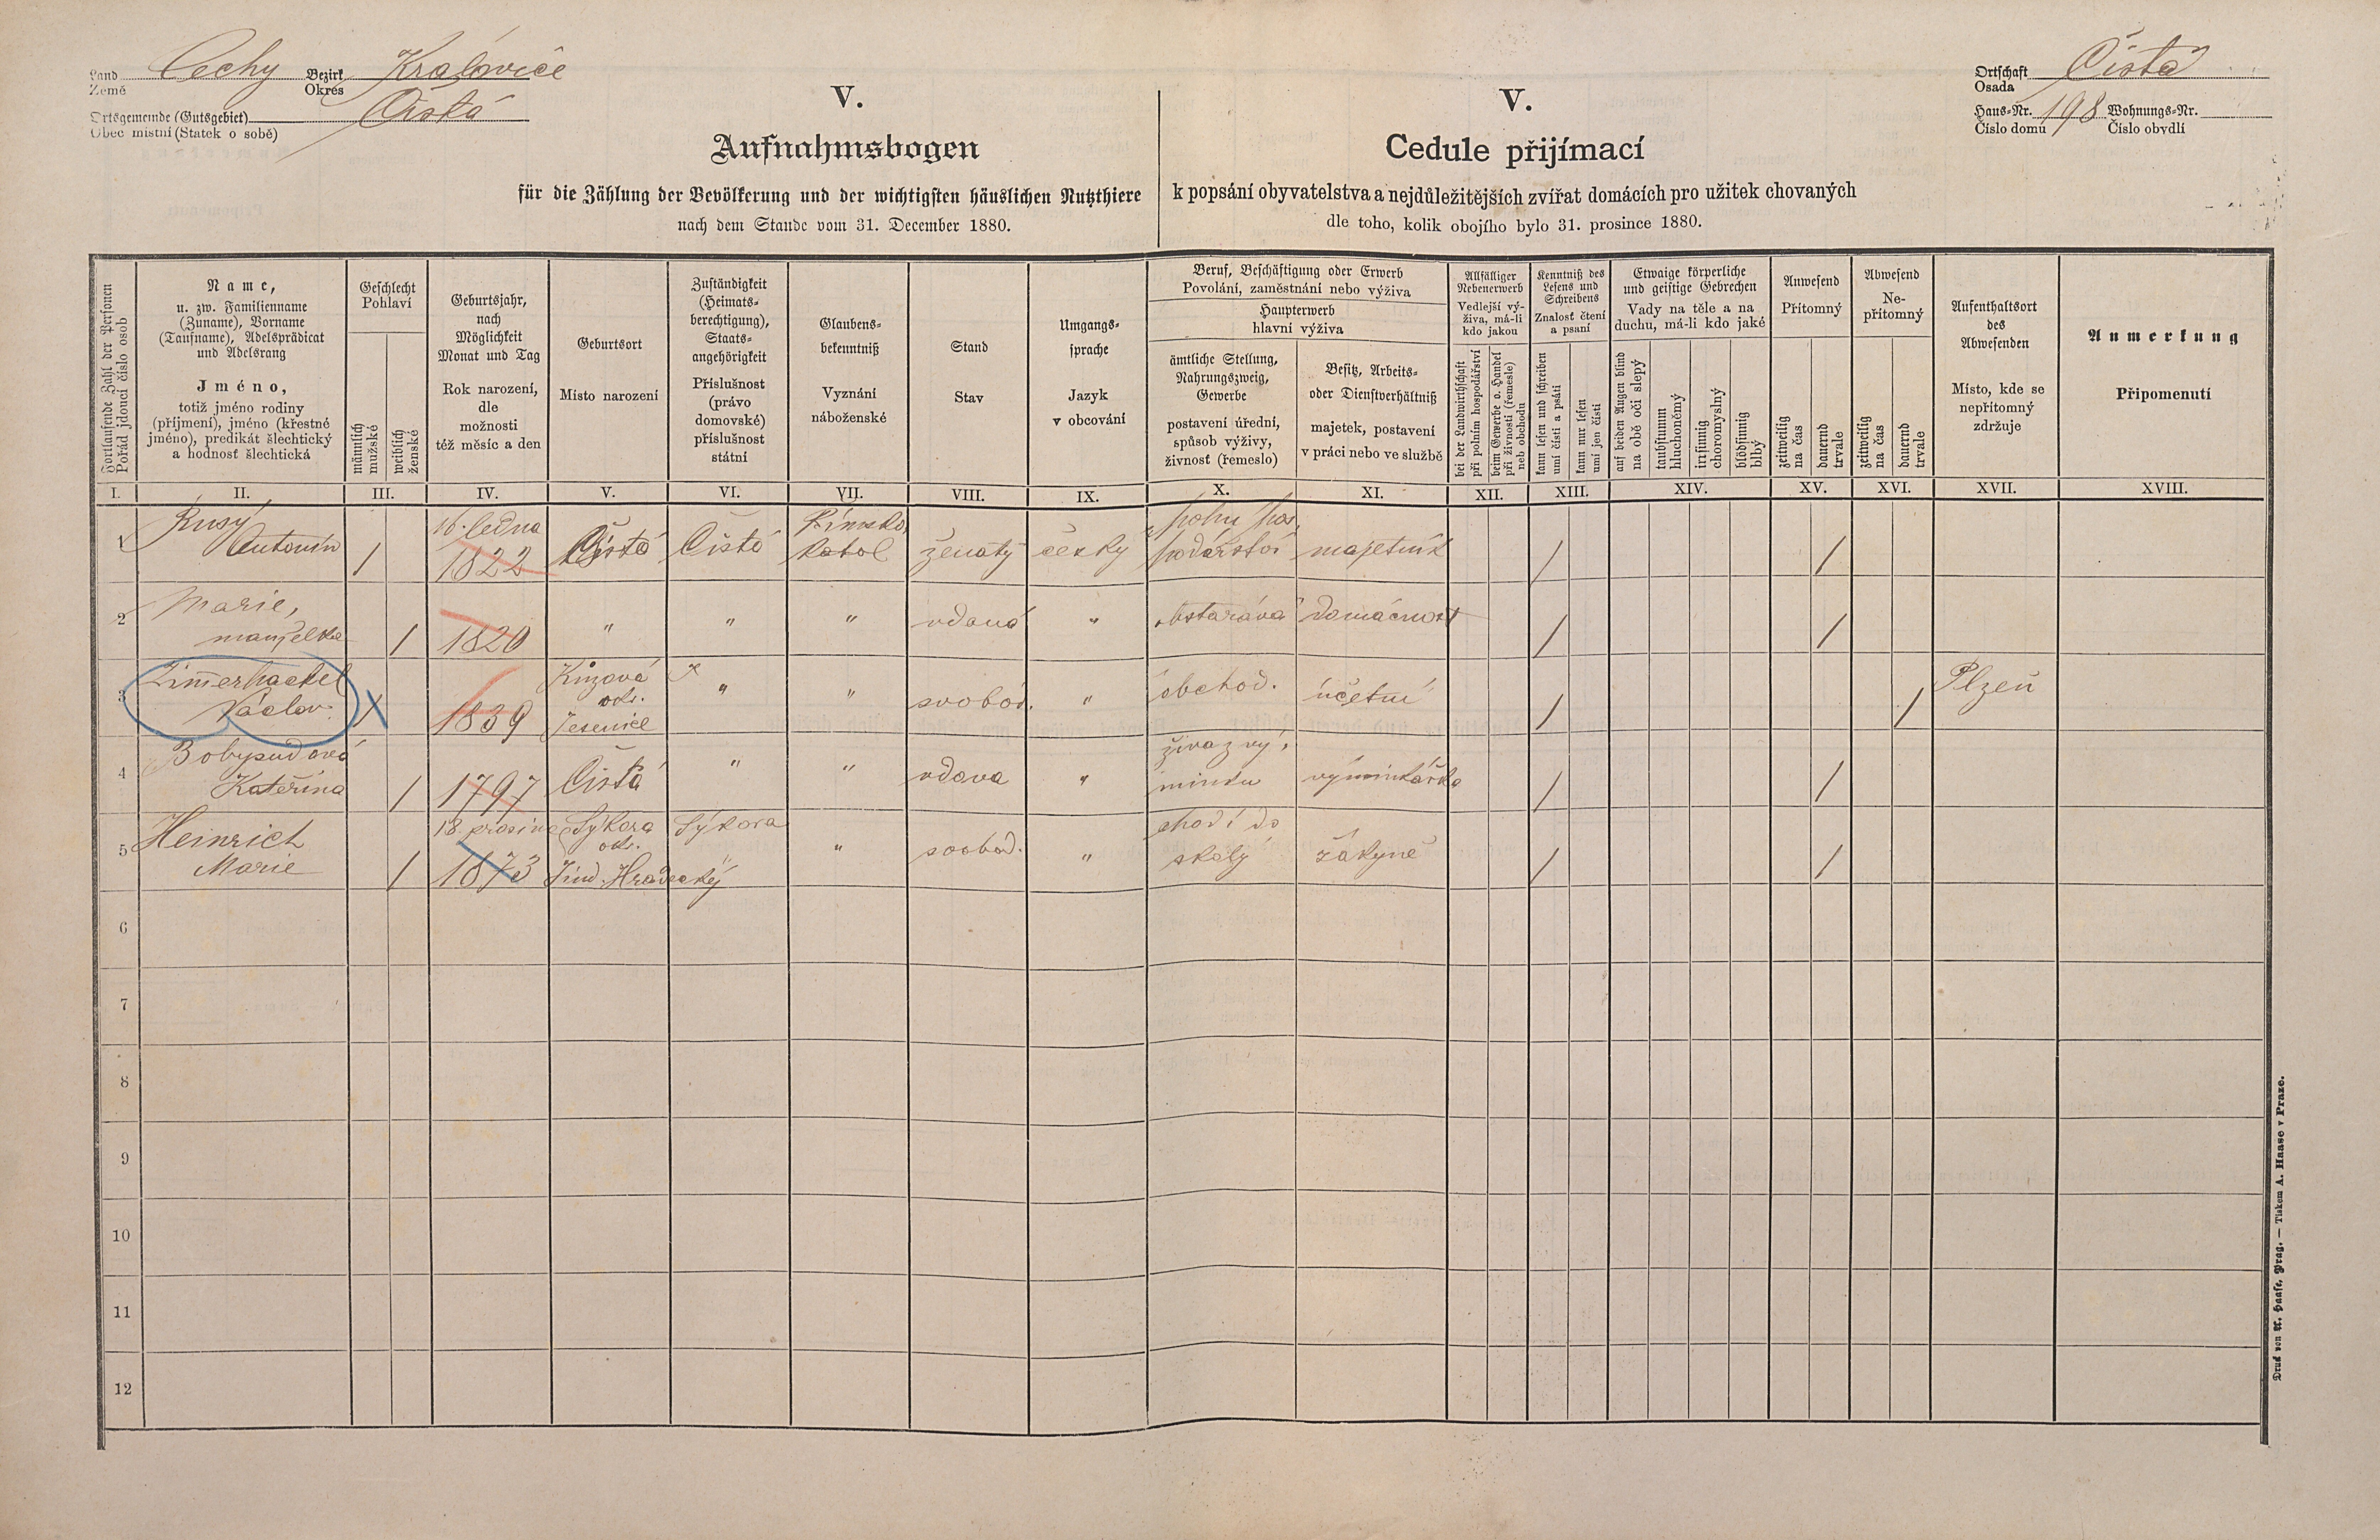 Land Čechy Bezirk Kralovice
Země Okres
Ortsgemeinde (Gutsgebiet) Čistá
Obec místní (Statek o sobě)
Ortschaft Čistá
Osada
Haus-Nr. 198 Wohnungs-Nr.
Číslo domu Číslo obydlí
V.
Aufnahmsbogen
für die Zählung der Bevölkerung und der wichtigsten häuslichen Nutzthiere
nach dem Stande vom 31. December 1880.
V.
Cedule přijímací
k popsání obyvatelstva a nejdůležitějších zvířat domácích pro užitek chovaných
dle toho, kolik obojího bylo 31. prosince 1880.
Fortlaufende Zahl der Personen
Pořád jdoucí číslo osob
Name,
u. zw. Familienname
(Zuname), Vorname
(Taufname), Adelsprädicat
und Adelsrang
Jméno,
totiž jméno rodiny
(příjmení), jméno (křestné
jméno), predikát šlechtický
a hodnosť šlechtická
Geschlecht
Pohlaví
männlich
mužské
weiblich
ženské
Geburtsjahr,
nach
Möglichkeit
Monat und Tag
Rok narození,
dle
možnosti
též měsíc a den
Geburtsort
Místo narození
Zuständigkeit
(Heimats-
berechtigung),
Staats-
angehörigkeit
Příslušnost
(právo
domovské)
příslušnost
státní
Glaubens-
bekenntniß
Vyznání
náboženské
Stand
Stav
Umgangs-
sprache
Jazyk
v obcování
Beruf, Beschäftigung oder Erwerb
Povolání, zaměstnání nebo výživa
Haupterwerb
hlavní výživa
ämtliche Stellung,
Nahrungszweig,
Gewerbe
postavení úřední,
spůsob výživy,
živnosť (řemeslo)
Besitz, Arbeits-
oder Dienstverhältniß
majetek, postavení
v práci nebo ve službě
Allfälliger
Nebenerwerb
Vedlejší vý-
živa, má-li
kdo jakou
bei der Landwirthschaft
při polním hospodářství
beim Gewerbe o. Handel
při živnosti (řemesle)
neb obchodu
Kenntniß des
Lesens und
Schreibens
Znalosť čtení
a psaní
kann lesen und schreiben
umí čísti a psáti
kann nur lesen
umí jen čísti
Etwaige körperliche
und geistige Gebrechen
Vady na těle a na
duchu, má-li kdo jaké
auf beiden Augen blind
na obě oči slepý
taubstumm
hluchoněmý
irrsinnig
choromyslný
blödsinnig
blbý
Anwesend
Přítomný
zeitweilig
na čas
dauernd
trvale
Abwesend
Ne-
přítomný
zeitweilig
na čas
dauernd
trvale
Aufenthaltsort
des
Abwesenden
Místo, kde se
nepřítomný
zdržuje
Anmerkung
Připomenutí
I. II. III. IV. V. VI. VII. VIII. IX. X. XI. XII. XIII. XIV. XV. XVI. XVII. XVIII.
Rusý 16. ledna Římsko polní hos,
1 Antonín / 1822 Čistá Čistá katol ženatý česky podářství majetník / /
2 Marie,
manželka / 1820 " " " vdaná " obstarává domácnost / /
Zimmerhackel
3 Václav / 1839 " " svobod. " obchod. účetní / / Plzeň
okr.
Jesenice
živa z vý,
4 Kateřina / 1797 Čistá " " vdova " minku výminkářka / /
Heinrich 18. prosince Sýkora Sýkora chodí do
5 Marie / 1873 okr. " svobod. " školy žákyně / /
Jind. Hradecký
6
7
8
9
10
11
12
Druck von A. Haase, Prag. — Tiskem A. Haase v Praze.